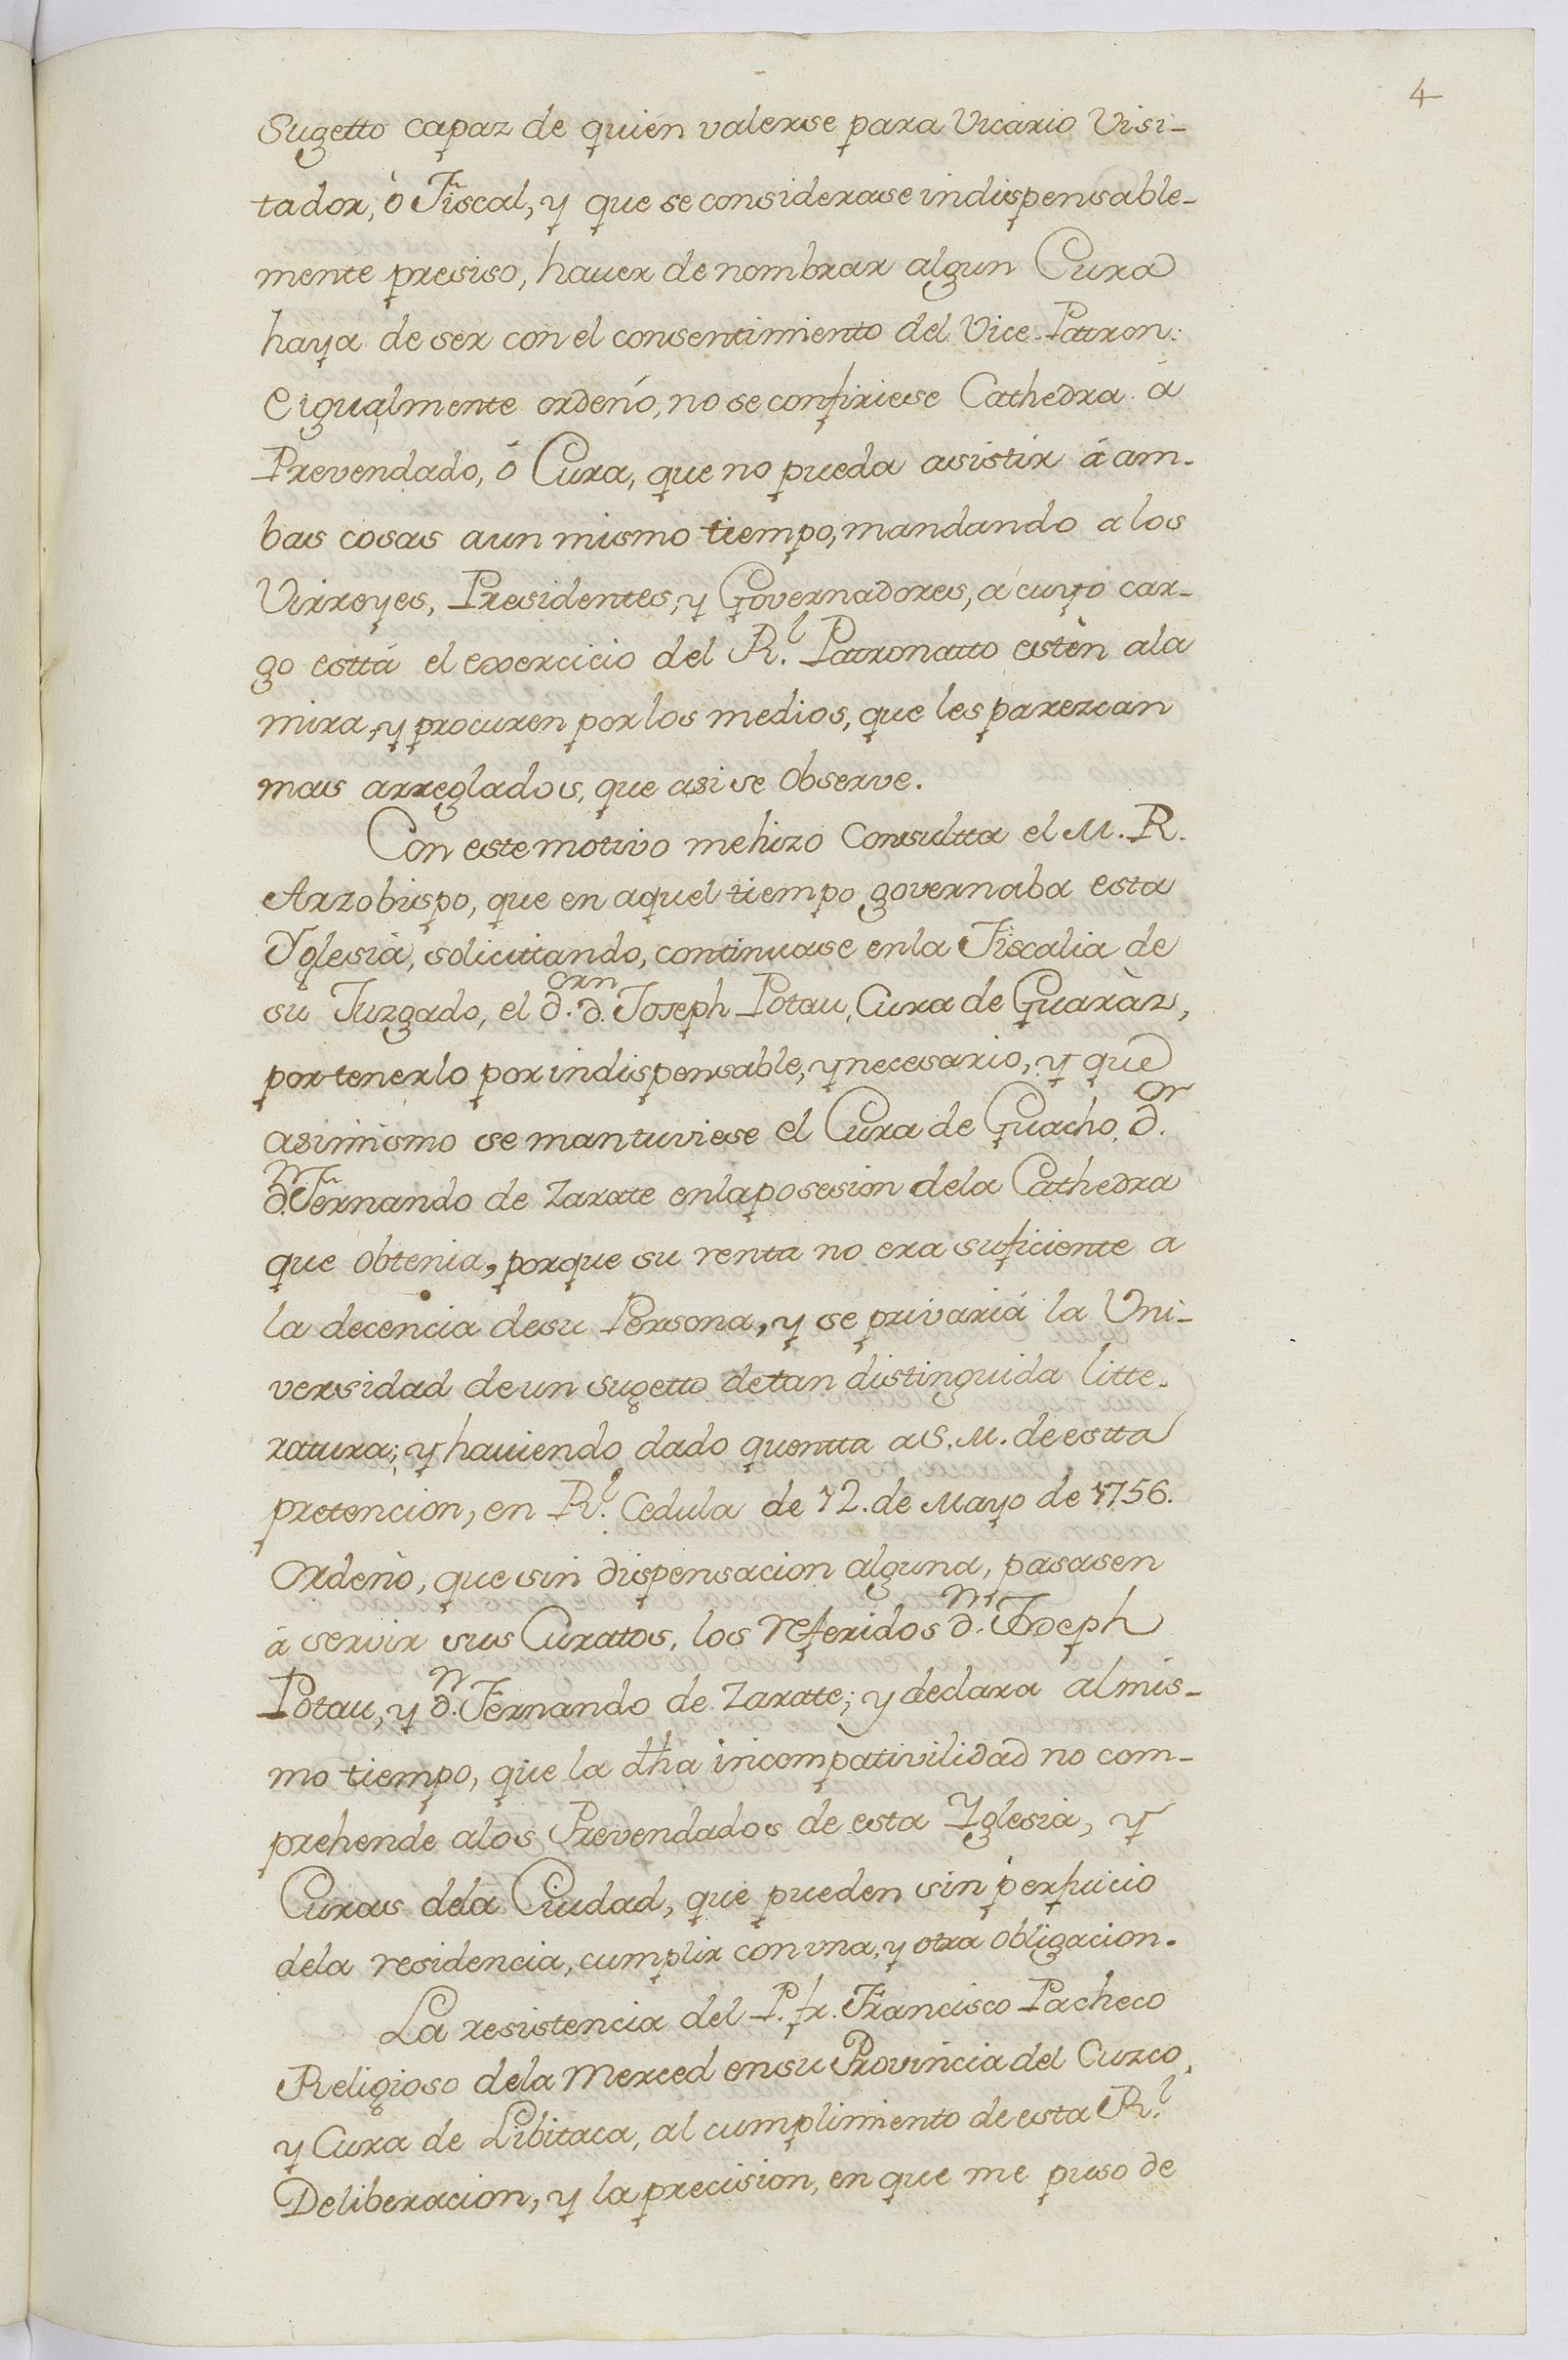 4
Sugetto capaz de quién valerse para Vicario Visi-
tador, ò Fiscal, y que se considerase indispensable-
mente presiso, hauer de nombrar algun Cura
haya de ser con el consentimiento del Vice-Patron:
e igualmente ordenó, no se confiriese Cathedra à
Prevendado, ó Cura, que no pueda asistir á am-
bas cosas aun mismo tiempo, mandando a los
Virreyes, Presidentes, y Governadores, á cuyo car-
go esttá el exercicio del R.l Patronatto estèn ala
mira, y procuren por los medios, que les parezcan
mas arreglados, que asi se observe.
Con este motivo me hizo Consultta el M. R.
Arzobispo, que en aquel tiempo governaba esta
Yglesia, solicittando, continuase enla Fiscalia de
su Juzgado, el D.or D.n Joseph Potau, Cura de Guaràz,
por tenerlo por indispensable, y necesario, y que
asimismo se mantuviese el Cura de Guacho, D.or
D.n Fernando de Zarate enla posesion dela Cathedra
que obtenia, porque su renta no era suficiente a
la decencia desu Persona, y se privariá la Uni-
versidad de un sugetto detan distinguida litte-
ratura; y hauiendo dado quentta a S. M. de estta
pretencion, en R.l Cedula de 12. de Mayo de 1756.
Ordenò, que sin dispensacion alguna, pasasen
á servir sus Curatos, los referidos D.n Joseph
Potau, y D.n Fernando de Zarate; y declara al mis-
mo tiempo, que la dha incompativilidad no com-
prehende alos Prevendados de esta Yglesia, y
Curas dela Ciudad, que pueden sin perjuicio
dela residencia, cumplir con vna, y otra obligacion.
La resistencia del P. fr. Francisco Pacheco
Religioso dela Merced ensu Provincia del Cuzco,
y Cura de Libitaca, al cumplimiento de esta R.l
Deliberacion, y la precision, en que me puso de